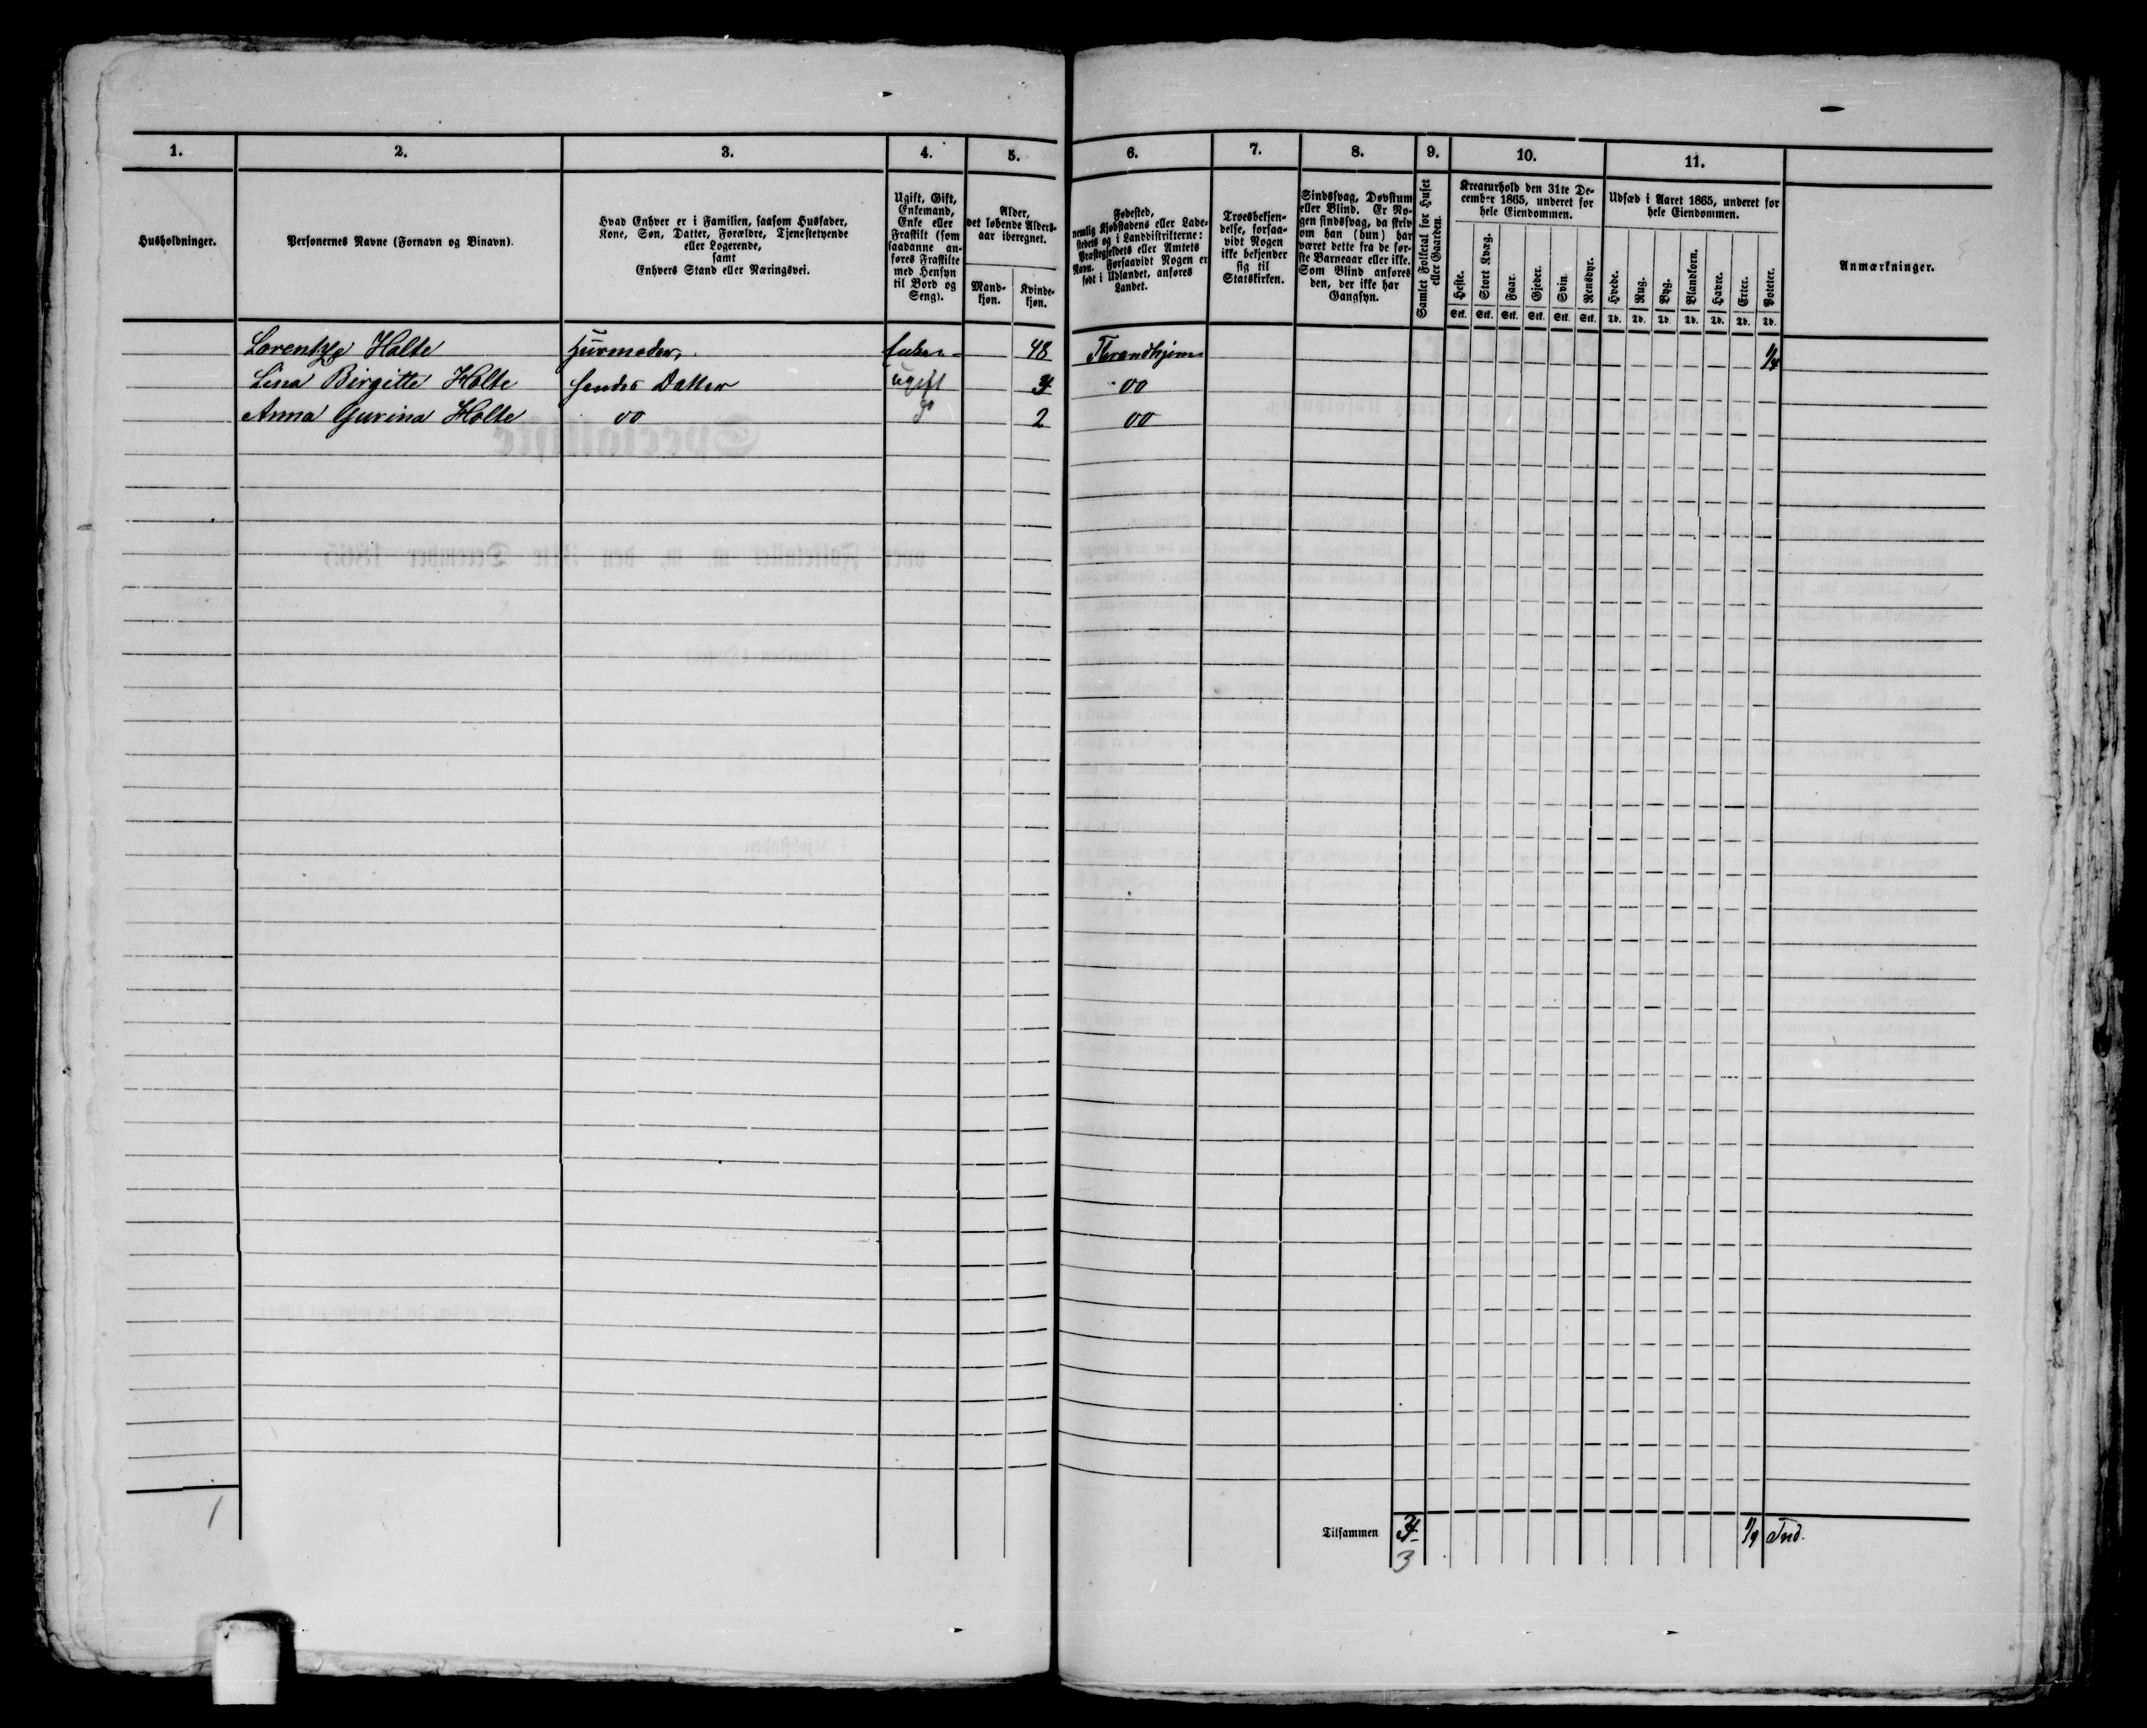 1. 2. 3. 4. 5. 6. 7. 8. 9. 10. 11.
Husholdninger.
Personernes Navne (Fornavn og Binavn).
Hvad Enhver er i Familien, saasom Husfader,
Kone, Søn, Datter, Forældre, Tjenestetyende
eller Logerende,
samt
Enhvers Stand eller Næringsvei.
Ugift, Gift,
Enkemand,
Enke eller
Fraskilt (som
saadanne an-
føres Fraskilte
med Hensyn
til Bord og
Seng).
Alder,
det løbende Alders-
aar iberegnet.
Mand-
kjøn.
Kvinde-
kjøn.
Fødested,
nemlig Kjøbstadens eller Lade-
stedets og i Landdistrikterne:
Præstegjeldets eller Amtets
Navn. Forsaavidt Nogen er
født i Udlandet, anføres
Landet.
Troesbekjen-
delse, forsaa-
vidt Nogen
ikke bekjender
sig til
Statskirken.
Sindssvag, Døvstum
eller Blind. Er No-
gen sindssvag, da skriv
om han (hun) har
været dette fra de før-
ste Barneaar eller ikke.
Som Blind anføres
den, der ikke har
Gangsyn.
Samlet Folketal for Huset
eller Gaarden.
Kreaturhold den 31te De-
cember 1865, underet for
hele Eiendommen.
Heste. Stort Kvæg. Faar. Gjeder. Svin. Rensdyr.
Stk. Stk. Stk. Stk. Stk. Stk.
Udsæd i Aaret 1865, underet for
hele Eiendommen.
Hvede. Rug. Byg. Blandkorn. Havre. Erter. Poteter.
Td. Td. Td. Td. Td. Td. Td.
Anmærkninger.
Lorentze Holte Husmoder Enke 48 Throndhjem 1/4
Lina Birgitte Holte hendes Datter ugift 00
Anna Gurina Holte 00 do 2 00
1
Tilsammen
3
Tnd.